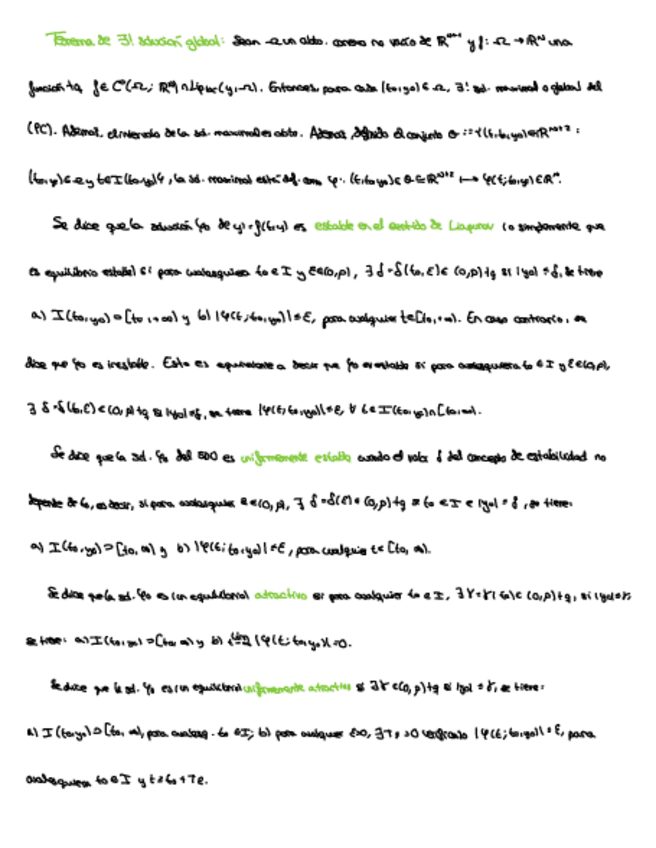 Teorema de ∃! solución global: Sean Ω un abto. conexo no vacío de ℝᴺ⁺¹ y f: Ω → ℝᴺ una
función tq f∈C⁰(Ω; ℝᴺ)∩Lip_loc(y,Ω). Entonces, para cada (t₀,y₀)∈Ω, ∃! sol. maximal o global del
(PC). Además, el intervalo de la sol. maximal es abto. Además, definido el conjunto Θ := {(t,t₀,y₀)∈ℝᴺ⁺² :
(t₀,y₀)∈Ω y t∈I(t₀,y₀)}, la sol. maximal está def. como φ: (t,t₀,y₀)∈Θ⊆ℝᴺ⁺² ↦ φ(t;t₀,y₀)∈ℝᴺ.
Se dice que la solución φ₀ de y'=f(t,y) es estable en el sentido de Liapunov (o simplemente que
es equilibrio estable) si para cualesquiera t₀∈I y ε∈(0,ρ), ∃ δ=δ(t₀,ε)∈(0,ρ) tq si |y₀|≤δ, se tiene
a) I(t₀,y₀)⊃[t₀,+∞) y b) |φ(t;t₀,y₀)|≤ε, para cualquier t∈[t₀,+∞). En caso contrario, se
dice que φ₀ es inestable. Esto es equivalente a decir que φ₀ es estable si para cualesquiera t₀∈I y ε∈(0,ρ),
∃ δ=δ(t₀,ε)∈(0,ρ) tq si |y₀|≤δ, se tiene |φ(t;t₀,y₀)|≤ε, ∀ t∈I(t₀,y₀)∩[t₀,∞).
Se dice que la sol. φ₀ del SDO es uniformemente estable cuando el valor δ del concepto de estabilidad no
depende de t₀, es decir, si para cualesquier ε∈(0,ρ), ∃ δ=δ(ε)∈(0,ρ) tq si t₀∈I e |y₀|≤δ, se tiene:
a) I(t₀,y₀)⊃[t₀,∞) y b) |φ(t;t₀,y₀)|≤ε, para cualquier t∈[t₀,∞).
Se dice que la sol. φ₀ es (un equilibrio) atractivo si para cualquier t₀∈I, ∃ γ=γ(t₀)∈(0,ρ) tq, si |y₀|≤γ,
se tiene: a) I(t₀,y₀)⊃[t₀,∞) y b) lim |φ(t;t₀,y₀)|=0.
Se dice que la sol. φ₀ es (un equilibrio) uniformemente atractivo si ∃γ∈(0,ρ) tq si |y₀|≤γ, se tiene:
a) I(t₀,y₀)⊃[t₀,∞), para cualesq. t₀∈I; b) para cualquier ε>0, ∃ T_ε>0 verificando |φ(t;t₀,y₀)|≤ε, para
cualesquiera t₀∈I y t≥t₀+T_ε.